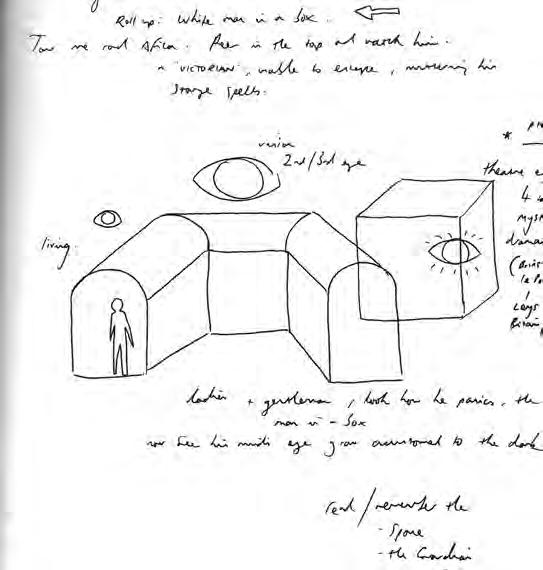 Roll up: White man in a box.
Tour me round Africa. Peer in the top and watch him.
a 'VICTORIAN', unable to escape, muttering his
strange spells.
vision
2nd/3rd eye
living.
theatre
4
ladies + gentleman, look how he panics, the
man in-box
now see his minds eye grow accustomed to the dark
read/remember the
- Spore
- the Guardian